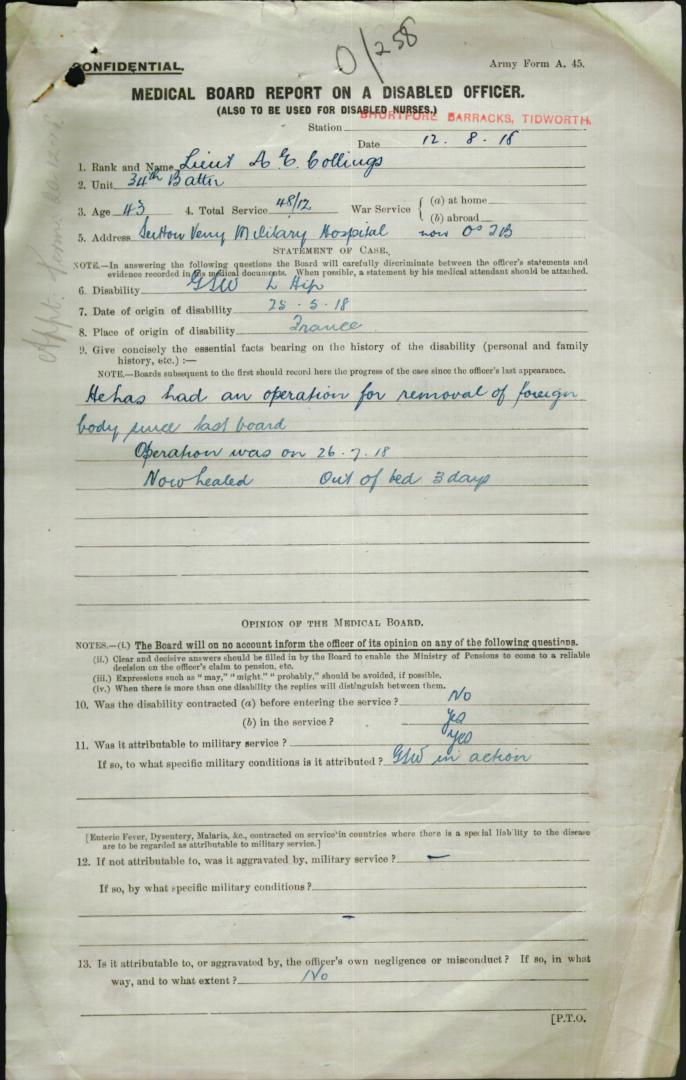 0/258
CONFIDENTIAL.
Army Form A. 45.
MEDICAL BOARD REPORT ON A DISABLED OFFICER.
(ALSO TO BE USED FOR DISABLED NURSES.)
Station BHURTPORE BARRACKS, TIDWORTH.
Date 12. 8. 18
1. Rank and Name Lieut A E Collings
2. Unit 34th Battn
3. Age 43 4. Total Service 48/12 War Service { (a) at home
(b) abroad
5. Address Sutton Veny Military Hospital now
STATEMENT OF CASE.
NOTE.—In answering the following questions the Board will carefully discriminate between the officer's statements and
evidence recorded in his medical documents. When possible, a statement by his medical attendant should be attached.
6. Disability GSW L Hip
7. Date of origin of disability 25-5-18
8. Place of origin of disability France
9. Give concisely the essential facts bearing on the history of the disability (personal and family
history, etc.) :—
NOTE.—Boards subsequent to the first should record here the progress of the case since the officer's last appearance.
He has had an operation for removal of foreign
body since last board
Operation was on 26-7-18
Now healed Out of bed 3 days
OPINION OF THE MEDICAL BOARD.
NOTES.—(i.) The Board will on no account inform the officer of its opinion on any of the following questions.
(ii.) Clear and decisive answers should be filled in by the Board to enable the Ministry of Pensions to come to a reliable
decision on the officer's claim to pension, etc.
(iii.) Expressions such as "may," "might," "probably," should be avoided, if possible.
(iv.) When there is more than one disability the replies will distinguish between them.
10. Was the disability contracted (a) before entering the service ? No
(b) in the service ? Yes
11. Was it attributable to military service ? Yes
If so, to what specific military conditions is it attributed ? GSW in action
[Enteric Fever, Dysentery, Malaria, &c., contracted on service in countries where there is a special liability to the disease
are to be regarded as attributable to military service.]
12. If not attributable to, was it aggravated by, military service ? –
If so, by what specific military conditions ?
–
13. Is it attributable to, or aggravated by, the officer's own negligence or misconduct ? If so, in what
way, and to what extent ? No
[P.T.O.